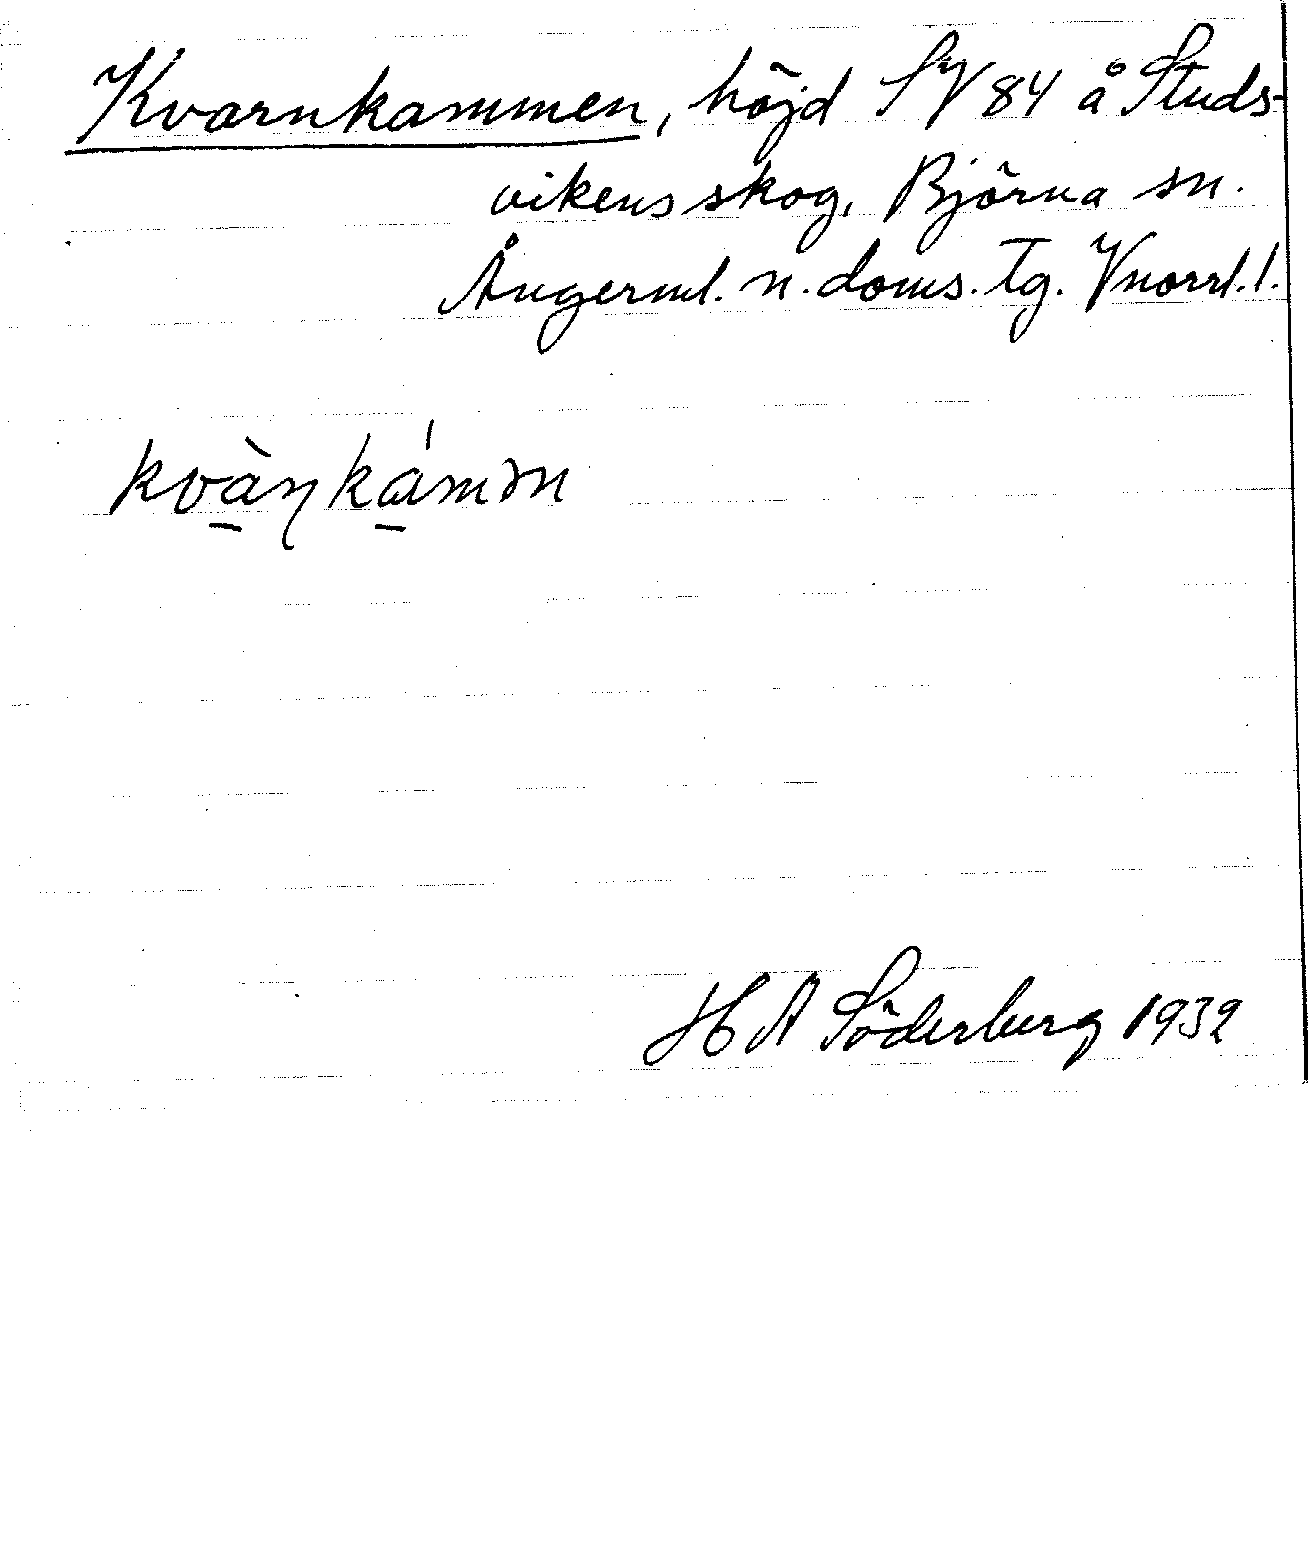 Kvarnkammen, höjd SV 84 å Studs-
vikens skog, Björna sn.
Ångerml. n. doms. tg. Vnorrl. l.
kvàṇkámən
H A Söderberg 1932